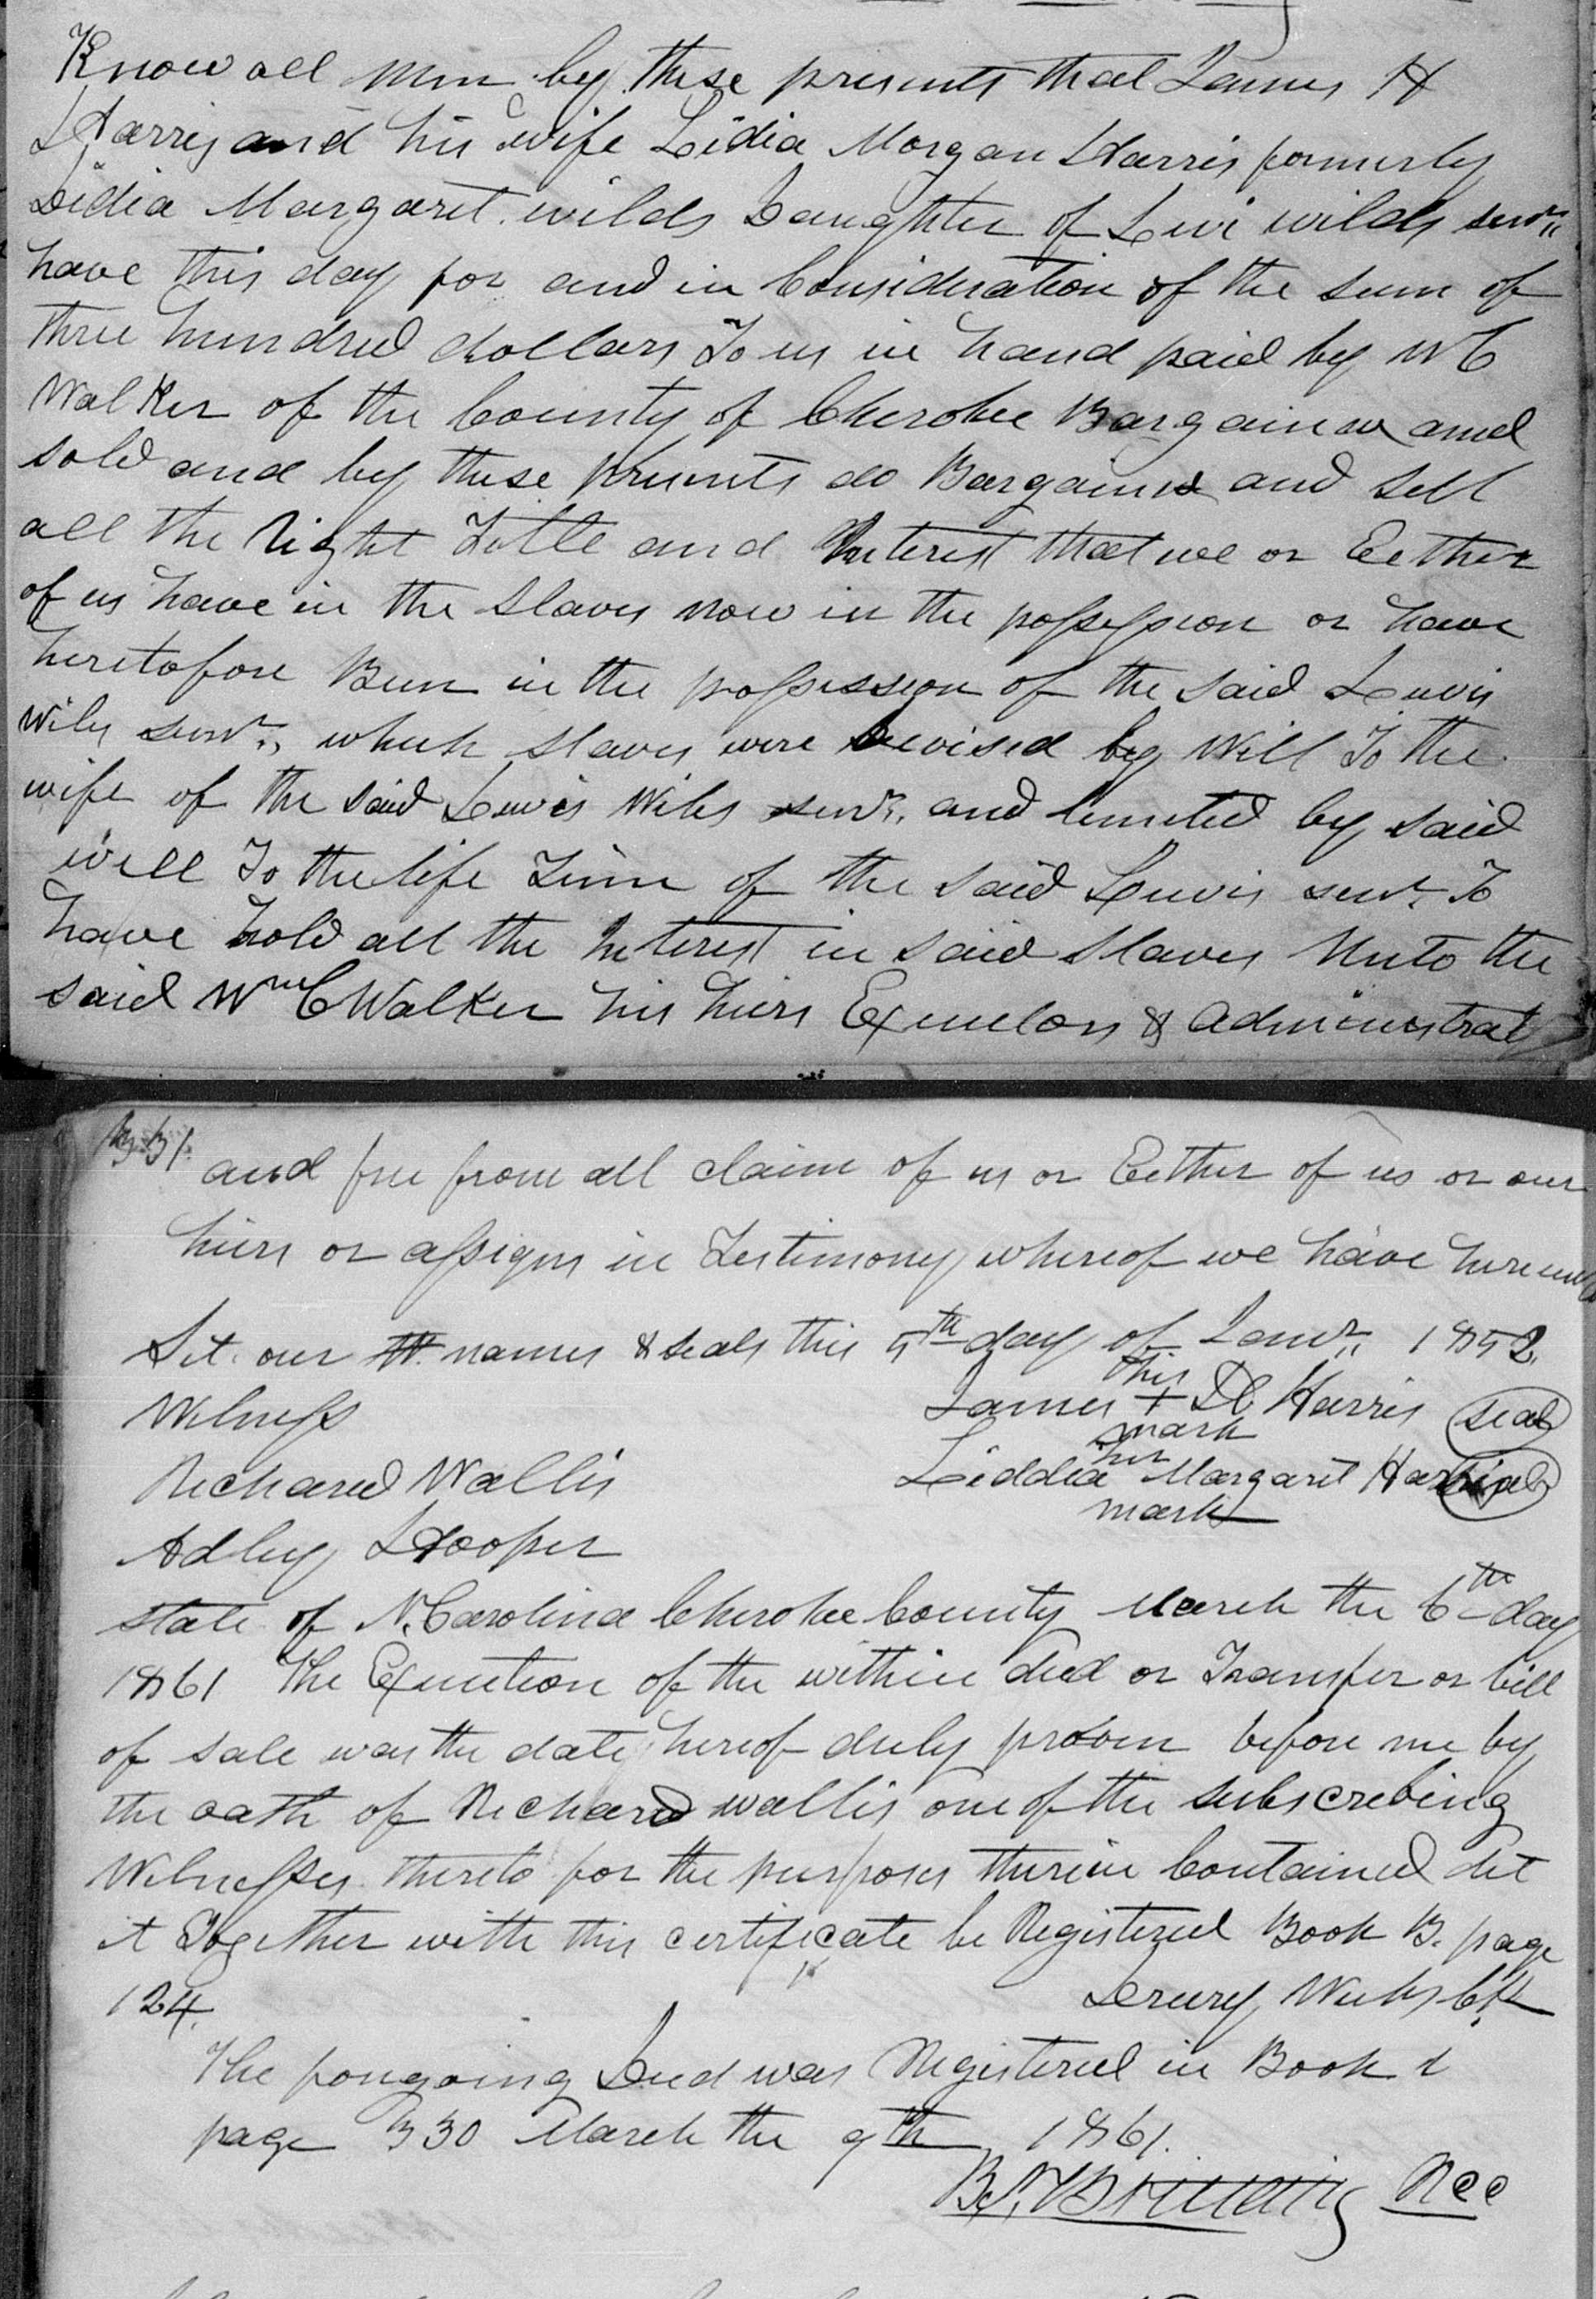 Know all men by these presents that James H
Harris and his wife Lidia Morgan Harris formerly
Lidia Margaret wilds Daughter of Levi wilds senr
have this day for and in Consideration of the sum of
three hundred dollars To us in hand paid by W C
Walker of the County of Cherokee Bargained and
sold and by these presents do Bargain and sell
all the Right Title and Interest that we or Eether
of us have in the slaves now in the possession or have
heretofore Been in the possession of the said Lewis
Wils senr. which slaves were devised by Will To the
wife of the said Lewis Wils senr. and limited by said
will To the life Time of the said Lewis senr. To
have hold all the Interest in said slaves Unto the
said Wm C Walker his heirs Executors & Administrat
331
and free from all claim of us or Eether of us or our
heirs or assigns in Testimony whereof we have hereunto
Set our names & seals this 5th day of Janr. 1852.
Witness James his + mark Harris seal
Richard Wallis Liddia her mark Margaret Harris seal
Adley Hooper
state of N. Carolina Cherokee County March the 6th day
1861 The Execution of the within deed or Transfer or bill
of sale was the date hereof duly proven before me by
the oath of Richard wallis one of the subscribing
Witnesses thereto for the purposes therein Contained let
it Together with this certificate be Registered Book B. page
124. Drury Weeks Clk
The foregoing Deed was Registered in Book
page 330 March the 9th 1861.